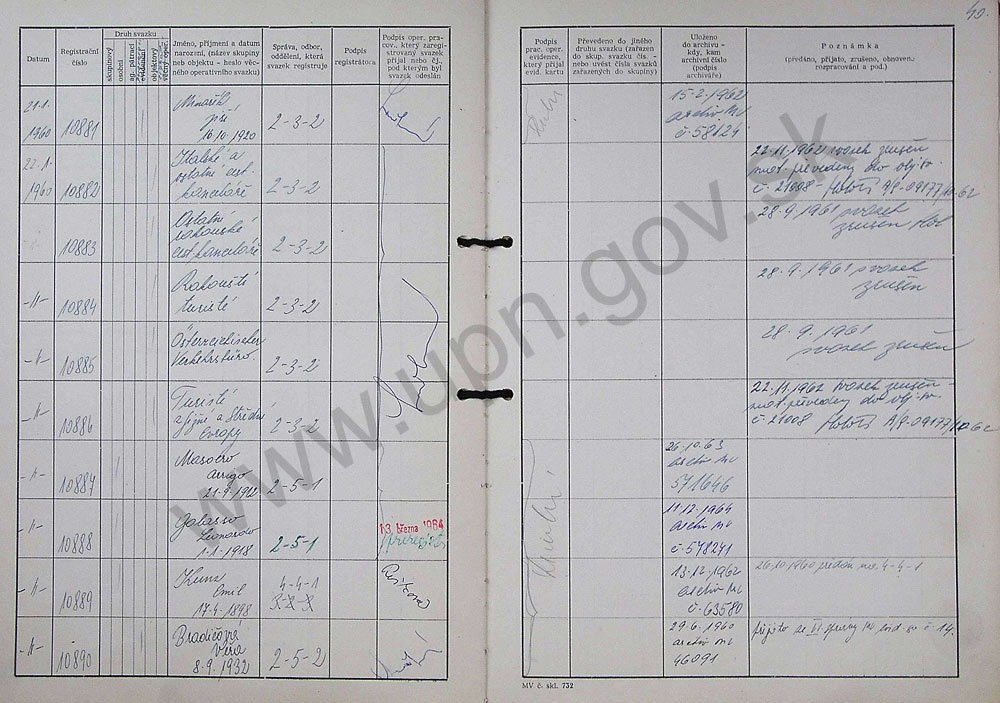 49.
Datum
Registrační číslo
Druh svazku
skupinový
osobní
Jméno, příjmení a datum narození, (název skupiny neb objektu - heslo věcného operativního svazku)
Správa, odbor, oddělení, která svazek registruje
Podpis registrátora
Podpis oper. pracov., který zaregistrovaný svazek přijal nebo čj., pod kterým byl svazek odeslán
Podpis prac. oper. evidence, který přijal evid. kartu
Převedeno do jiného druhu svazku (zařazen do skup. svazku čís. - nebo uvést čísla svazků zařazených do skupiny)
Uloženo do archivu - kdy, kam archivní číslo (podpis archiváře)
Poznámka
(předáno, přijato, zrušeno, obnoven. rozpracování a pod.)
21.1.
1960 10881
16.10.1920 2-3-2
15.2.1962
archiv MV
č. 58124
22.1.
1960 10882
Italské a
ostatní cest.
kanceláře 2-3-2
22.11.1962 svazek zrušen
mat. převedeny do obj. sv.
č. 21008 - A/9-09177/10-62
10883
Ostatní
rakouské
cest. kanceláře 2-3-2
28.9.1961 svazek
zrušen
-"- 10884
Rakouští
turisté 2-3-2
28.9.1961 svazek
zrušen
-"- 10885
Österreichischer
Verkehrsbüro. 2-3-2
28.9.1961
svazek zrušen
-"- 10886
Turisté
z jižní a Střední
Evropy 2-3-2
22.11.1962 svazek zrušen -
mat. převedeny do obj. sv.
č. 21008 A/9-09177/10-62
-"- 10887
Arrigo
21.9.1912 2-5-1
26.10.63
archiv MV
571646
-"- 10888
Galasso
Leonardo
1.1.1918 2-5-1
13. března 1964
11.12.1964
archiv MV
č. 578241
-"- 10889
Kunz
Emil 4-4-1
17.4.1898
13.12.1962
archiv MV
č. 63580
26.10.1960 předán na 4-4-1
-"- 10890
Věra
8.9.1932 2-5-2
29.6.1960
archiv MV
46091
přijato ze II správy MV pod č. 14.
MV č. skl. 732
www.upn.gov.sk